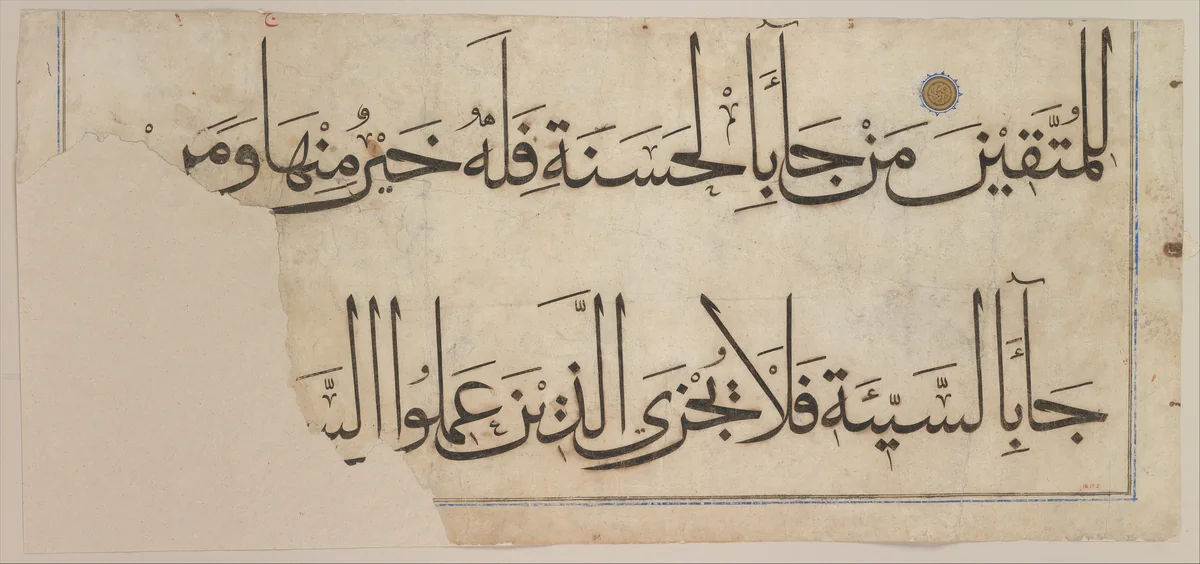 لِلْمُتَّقِيْنَ مَنْ جَآءَ بِالْحَسَنَةِ فَلَهُ خَيْرٌ مِنْهَا وَمَنْ
جَآءَ بِالسَّيِّئَةِ فَلَا يُجْزَى الَّذِيْنَ عَمِلُوا